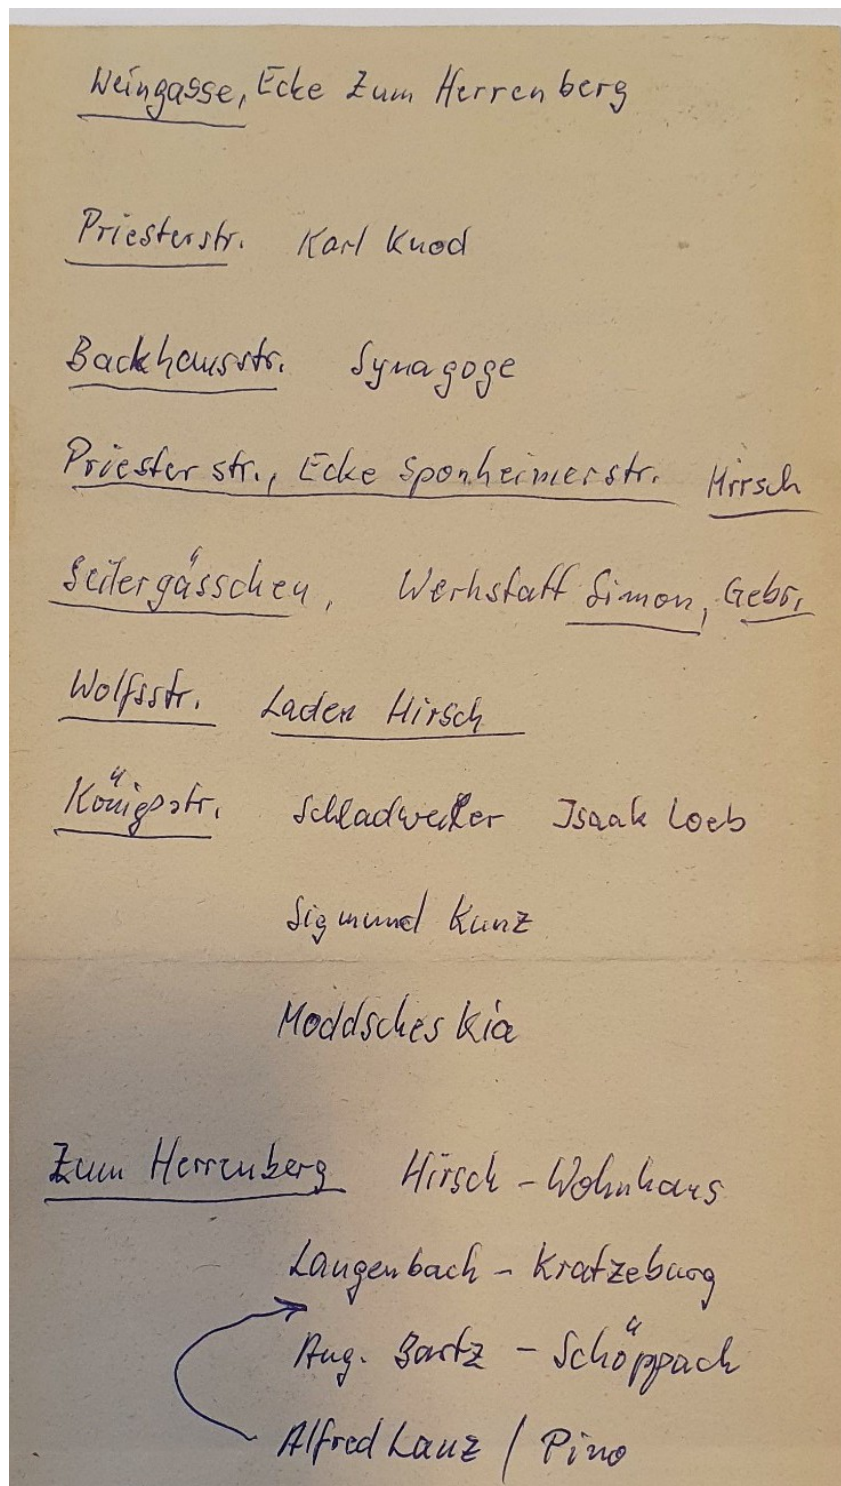 Weingasse, Ecke Zum Herrenberg
Priesterstr. Karl Knod
Backhausstr. Synagoge
Priesterstr., Ecke Sponheimerstr. Hirsch
Seilergässchen, Werkstatt Simon, Gebr.
Wolfsstr. Laden Hirsch
Königstr. Schladweiler Isaak Loeb
Sigmund Kunz
Moddsches Kia
Zum Herrenberg Hirsch - Wohnhaus
Langenbach - Kratzeburg
Aug. Bartz - Schöppach
Alfred Lanz / Pino